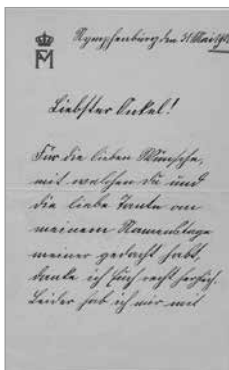 FM
Nymphenburg den 31 Mai
Liebster Onkel!
Für die lieben Wünsche,
mit welchen Du und
die liebe Tante an
meinem Namenstage
meiner gedacht habt,
danke ich Euch recht herzlich.
Leider hab ich mir mit